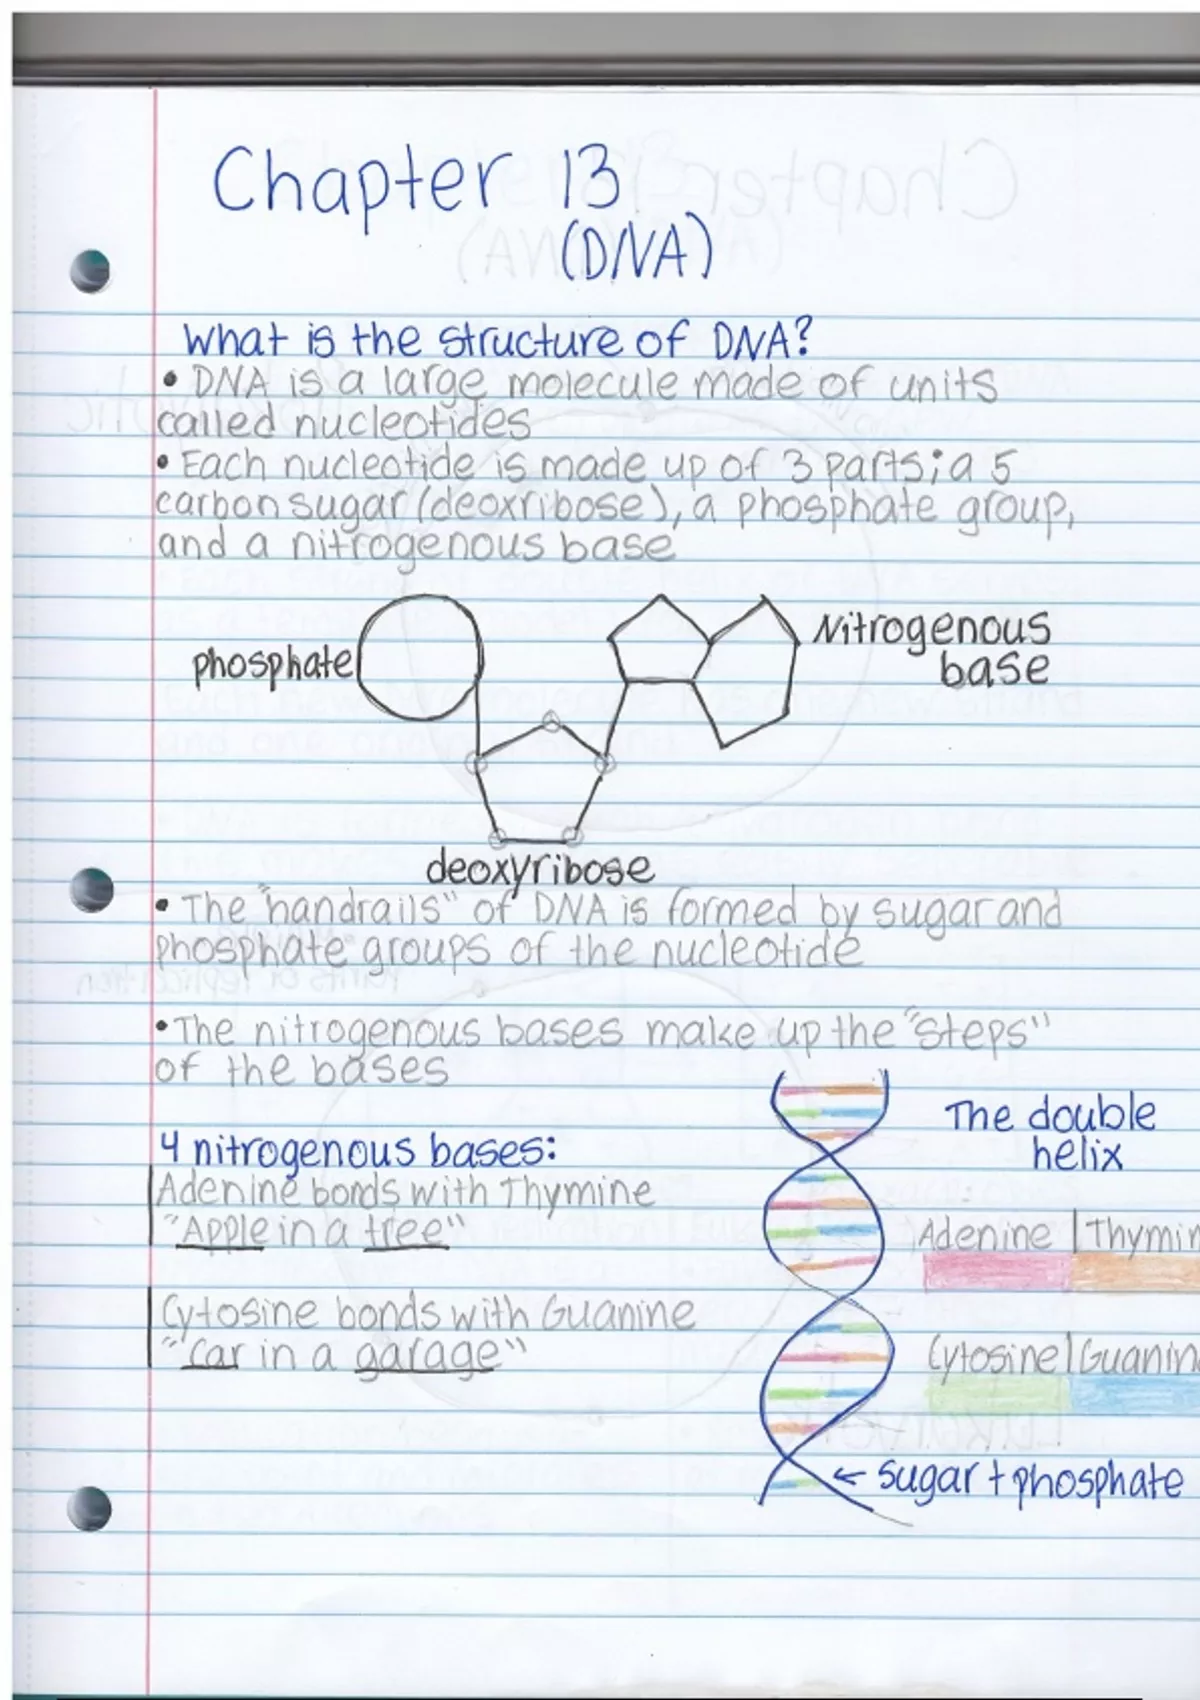 Chapter 13
(DNA)
What is the structure of DNA?
• DNA is a large molecule made of units
called nucleotides
• Each nucleotide is made up of 3 parts; a 5
carbon sugar (deoxribose), a phosphate group,
and a nitrogenous base
phosphate
Nitrogenous
base
deoxyribose
• The "handrails" of DNA is formed by sugar and
phosphate groups of the nucleotide
• The nitrogenous bases make up the "steps"
of the bases
The double
helix
4 nitrogenous bases:
Adenine bonds with Thymine
"Apple in a tree"
Adenine | Thymin
Cytosine bonds with Guanine
"car in a garage"
Cytosine | Guanin
← sugar + phosphate